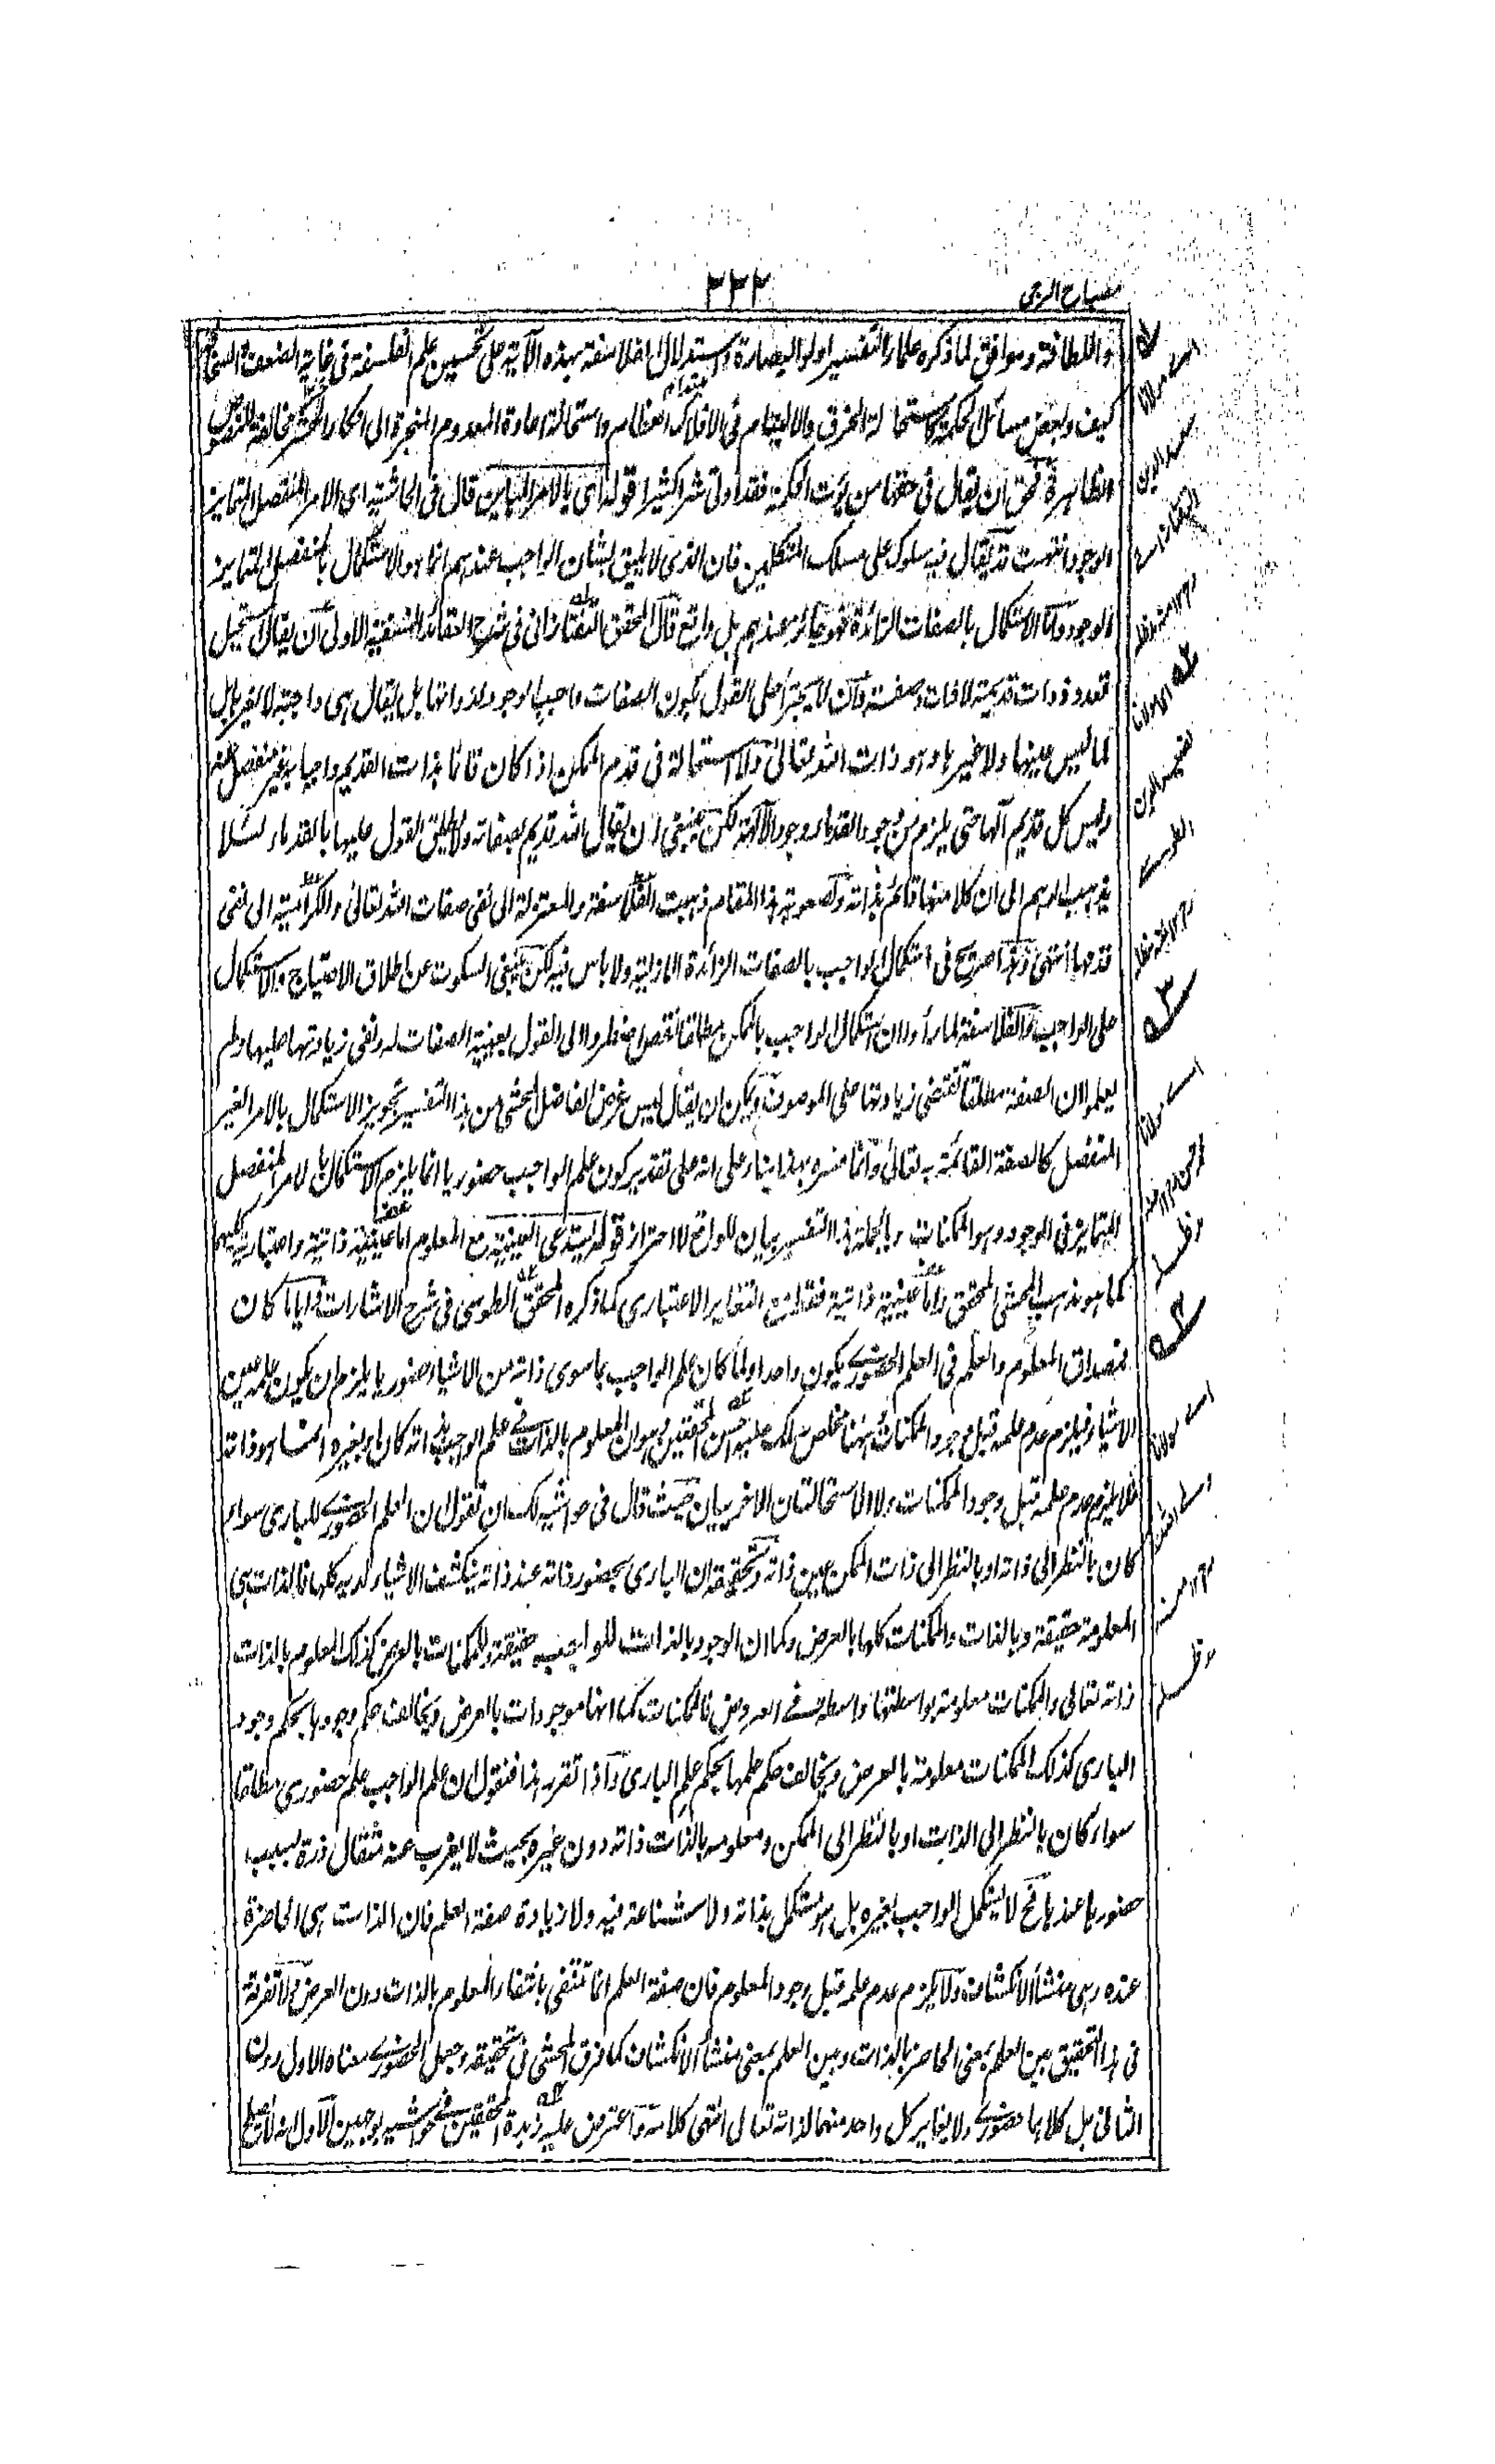 مصباح الدجى
٢٣٢
واللطافة وموافق لما ذكره علماء التفسير اولو البصارة واستدلال الفلاسفة بهذه الآية على تحسين علم الفلسفة فى غاية الضعف
كيف وبعض مسائل الحكمة كاستحالة الخرق والالتيام فى الافلاك العظام واستحالة اعادة المعدوم المنجرة الى انكار الحشر مخالفة للنصوص
الظاهرة فحق ان يقال فى حقها من يؤت الحكمة فقد اوتى شرا كثيرا قوله اى بالامر المباين قال فى الحاشية اى الامر المنفصل المتمايز
الوجود انتهت قد يقال فيه سلوك على مسلك المتكلمين فان الذى لا يليق بشان الواجب عندهم انما هو الاستكمال بالمنفصل المتمايز
الوجود واما الاستكمال بالصفات الزائدة فهو جائز عندهم بل واقع قال المحقق التفتازانى فى شرح العقائد النسفية الاولى ان يقال المستحيل
تعدد ذوات قديمة لا ذات وصفة وان لا يجترأ على القول بكون الصفات واجب الوجود لذواتها بل يقال هى واجبة لا لغيرها بل
لما ليس عينها ولا غيرها وهو ذات الله تعالى ولا استحالة فى قدم الممكن اذا كان قائما بذات القديم واجبا به غير منفصل عنه
وليس كل قديم آلها حتى يلزم من وجود القدماء وجود الآلهة لكن ينبغى ان يقال الله قديم بصفاته ولا يطلق القول عليها بالقدماء لئلا
يذهب الوهم الى ان كلا منها قائم بذاته ولصعوبة هذا المقام ذهبت الفلاسفة والمعتزلة الى نفى صفات الله تعالى والكرامية الى نفى
قدمها انتهى وهذا صريح فى استكمال الواجب بالصفات الزائدة الازلية ولا باس فيه لكن ينبغى السكوت عن اطلاق الاحتياج والاستكمال
على الواجب والفلاسفة لما رأوا ان استكمال الواجب بالممكن مطلقا نقص اضطروا الى القول بعينية الصفات له ونفى زيادتها عليها ولم
يعلموا ان الصفة مطلقا تقتضى زيادتها على الموصوف ويمكن ان يقال ليس غرض الفاضل المحشى من هذا التفسير تجويز الاستكمال بالامر الغير
المنفصل كالصفة القائمة به تعالى وانما فسره بهذا بناء على انه على تقدير كون علم الواجب حضوريا انما يلزم الاستكمال بالامر المنفصل
المتمايز فى الوجود وهو الممكنات وبالجملة هذا التفسير بيان للواقع لا احتراز قوله يستدعى العينية مع المعلوم اما عينية ذاتية واعتبارية كليهما
كما هو مذهب المحشى المحقق واما عينية ذاتية فقط مع التغاير الاعتبارى كما ذكره المحقق الطوسى فى شرح الاشارات وايا ما كان
فمصداق المعلوم والعلم فى العلم الحضورى يكون واحدا ولما كان علم الواجب بما سوى ذاته من الاشياء حضوريا يلزم ان يكون علمه عين
الاشياء فيلزم عدم علمه قبل وجود الممكنات وههنا مخلص سلك عليه احسن المحققين وهو ان المعلوم بالذات فى علم الواجب بذاته كان او بغيره انما هو ذاته
فلا يلزم عدم علمه قبل وجود الممكنات ولا الاستحالتان الاخريان حيث قال فى حواشيه لك ان تقول ان العلم الحضورى للبارى سواء
كان بالنظر الى ذاته او بالنظر الى ذات الممكن عين ذاته وتحقيقه ان البارى بحضور ذاته عند ذاته ينكشف الاشياء لديه كلها فالذات هى
المعلومة حقيقة وبالذات والممكنات كلها بالعرض وكما ان الوجود بالذات للواجب حقيقة وللممكنات بالعرض كذلك المعلوم بالذات
ذاته تعالى والممكنات معلومة بواسطتها واسطة فى العروض فالممكنات كما انها موجودات بالعرض ويخالف حكم وجودها بحكم وجود
البارى كذلك الممكنات معلومة بالعرض ويخالف حكم علمها بحكم علم البارى واذا تقرر هذا فنقول ان علم الواجب علم حضورى مطلقا
سواء كان بالنظر الى الذات او بالنظر الى الممكن ومعلومه بالذات ذاته دون غيره بحيث لا يعزب عنه مثقال ذرة بسبب
حضورها عندها فح لا يستكمل الواجب بغيره بل هو مستكمل بذاته ولا شناعة فيه ولا زيادة صفة العلم فان الذات هى الحاضرة
عنده وهى منشأ الانكشاف ولا يلزم عدم علمه قبل وجود المعلوم فان صفة العلم انما تنتفى بانتفاء المعلوم بالذات دون العرض ولا تفرقة
فى هذا التحقيق بين العلم بمعنى الحاضر بالذات وبين العلم بمعنى منشأ الانكشاف كما فرق المحشى فى تحقيقه وجعل الحضورى معناه الاول دون
الثانى بل كلاهما حضورى ولا يغاير كل واحد منهما لذاته تعالى انتهى كلامه واعترض عليه زبدة المحققين فى حواشيه بوجهين الاول انه
اى مولانا
سعد الدين
التفتازانى
١٢ منه مد ظله
اى مولانا
نصير الدين
الطوسى
١٢ منه مد ظله